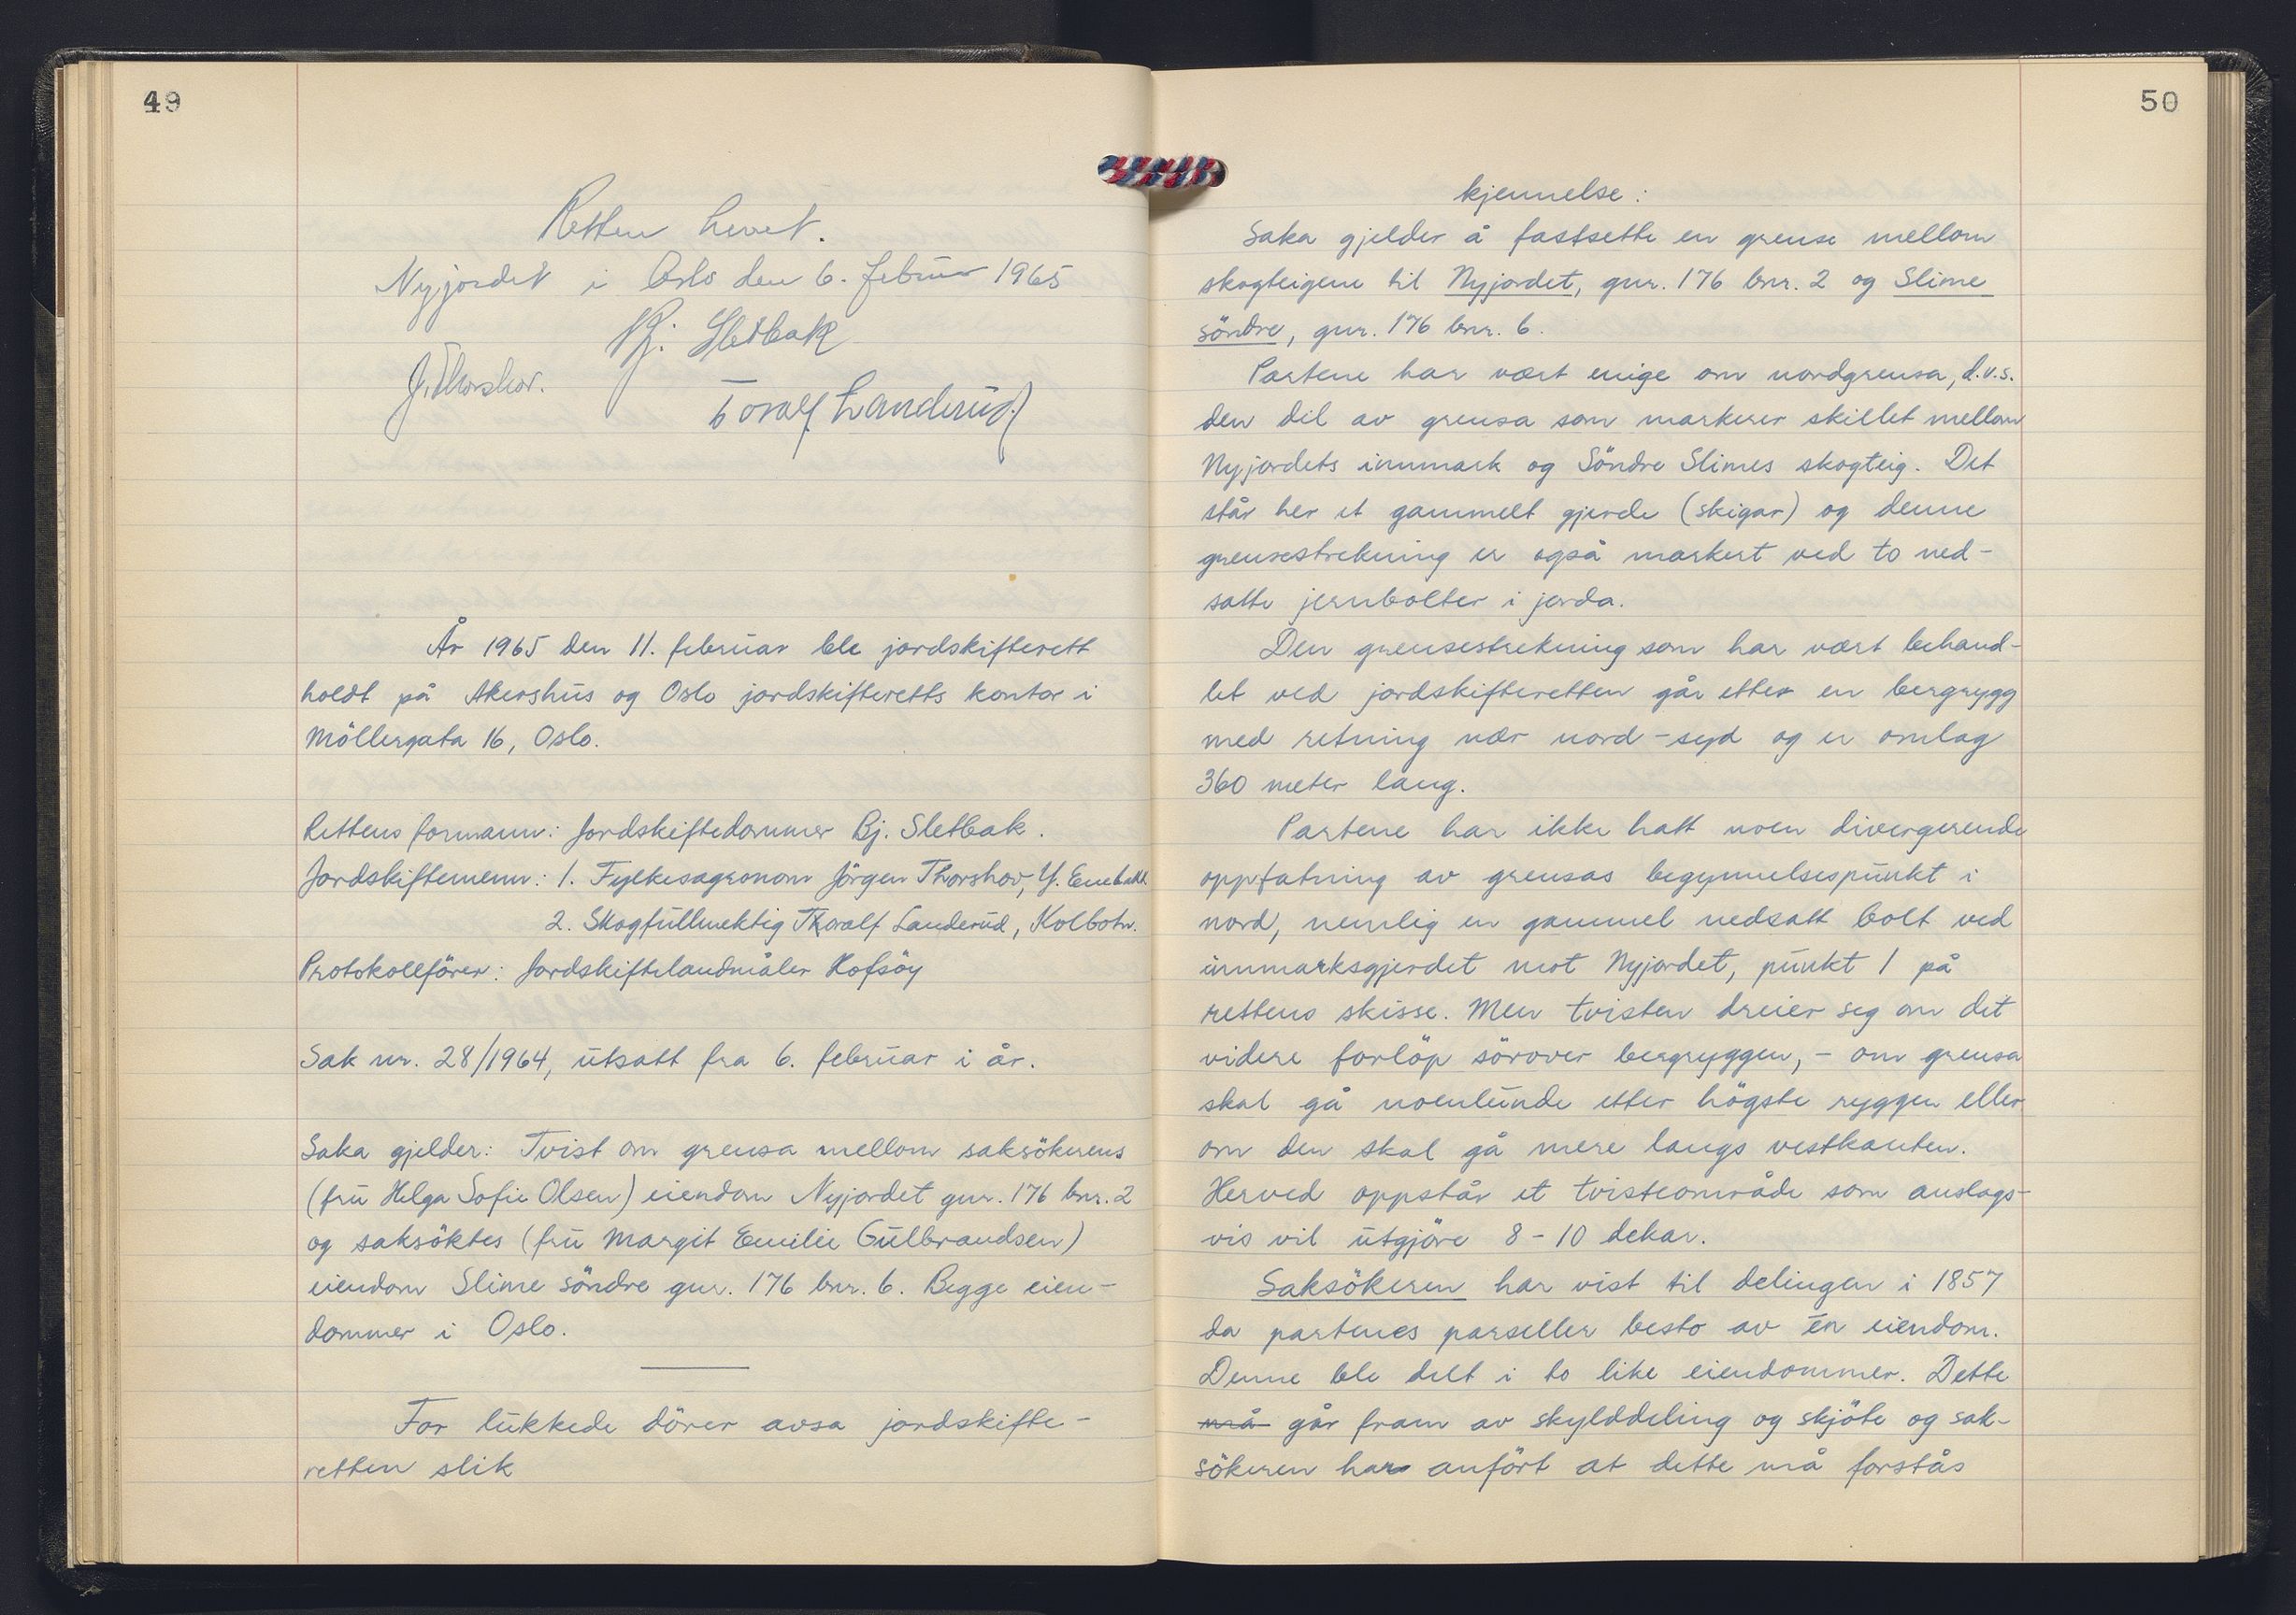 49
Retten hevet.
Nyjordet i Oslo den 6. februar 1965
Bj. Sletbak
J. Thorshov.
Toralf Landerud
År 1965 den 11. februar ble jordskifterett
holdt på Akershus og Oslo jordskifteretts kontor i
Möllergata 16, Oslo.
Rettens formann: Jordskiftedommer Bj. Sletbak.
Jordskiftemenn: 1. Fylkesagronom Jörgen Thorshov, Y. Enebakk.
2. Skogfullmektig Thoralf Landerud, Kolbotn.
Protokollförer: Jordskiftelandmåler Hofsöy
Sak nr. 28/1964, utsatt fra 6. februar i år.
Saka gjelder: Tvist om grensa mellom saksökerens
(fru Helga Sofie Olsen) eiendom Nyjordet gnr. 176 bnr. 2
og saksöktes (fru Margit Emilie Gulbrandsen)
eiendom Slime söndre gnr. 176 bnr. 6. Begge eien-
dommer i Oslo.
For lukkede dörer avsa jordskifte-
retten slik
50
kjennelse:
Saka gjelder å fastsette en grense mellom
skogteigene til Nyjordet, gnr. 176 bnr. 2 og Slime
söndre, gnr. 176 bnr. 6.
Partene har vært enige om nordgrensa, d.v.s.
den del av grensa som markerer skillet mellom
Nyjordets innmark og Söndre Slimes skogteig. Det
står her et gammelt gjerde (skigar) og denne
grensestrekning er også markert ved to ned-
satte jernbolter i jorda.
Den grensestrekning som har vært behand-
let ved jordskifteretten går etter en bergrygg
med retning nær nord-syd og er omlag
360 meter lang.
Partene har ikke hatt noen divergerende
oppfatning av grensas begynnelsespunkt i
nord, nemlig en gammel nedsatt bolt ved
innmarksgjerdet mot Nyjordet, punkt 1 på
rettens skisse. Men tvisten dreier seg om det
videre forlöp sörover bergryggen, - om grensa
skal gå noenlunde etter högste ryggen eller
om den skal gå mere langs vestkanten.
Herved oppstår et tvisteområde som anslags-
vis vil utgjöre 8-10 dekar.
Saksökeren har vist til delingen i 1857
da partenes parseller besto av én eiendom.
Denne ble delt i to like eiendommer. Dette
må går fram av skylddeling og skjöte og sak-
sökeren har anfört at dette må forstås